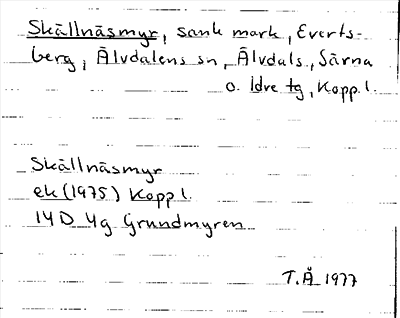 Skällnäsmyr, sank mark, Everts-
berg, Älvdalens sn, Älvdals, Särna
o. Idre tg, Kopp l.
Skällnäsmyr
ek (1975) Kopp l.
14D 4g Grundmyren
T.Å 1977